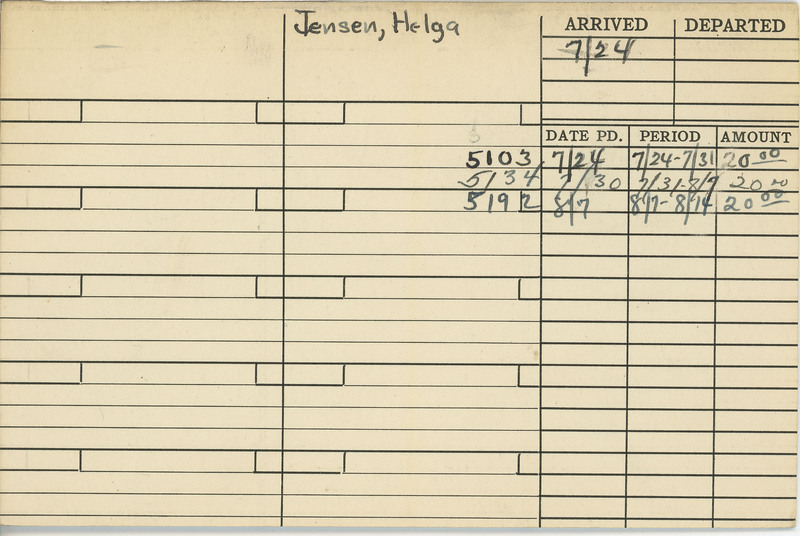 Jensen, Helga
ARRIVED DEPARTED
7/24
DATE PD. PERIOD AMOUNT
5103 7/24 7/24-7/31 20 00
5134 7/30 7/31-8/7 20 00
5192 8/7 8/7-8/14 20 00